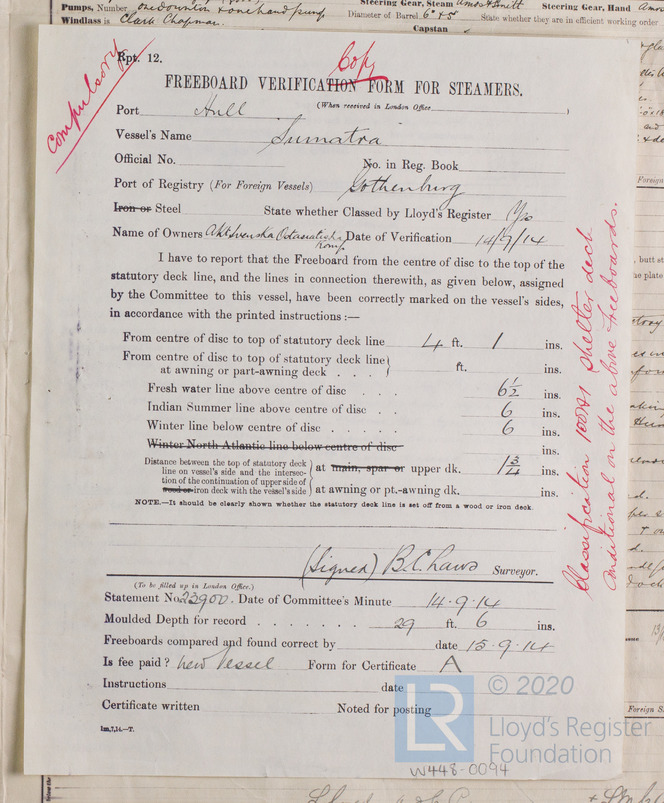 Pumps, Number one downton & one hand pump
Windlass is Clark Chapman.
Steering Gear, Steam Amos & Smith Steering Gear, Hand Amo
Diameter of Barrel 6" & 5" State whether they are in efficient working order
Capstan
compulsory
Rpt. 12.
Copy
FREEBOARD VERIFICATION FORM FOR STEAMERS.
Port Hull (When received in London Office )
Vessel's Name "Sumatra"
Official No. No. in Reg. Book
Port of Registry (For Foreign Vessels) Gothenburg
Iron or Steel State whether Classed by Lloyd's Register Yes
Name of Owners Akt Svenska Ostasiatiska Komp. Date of Verification 14/9/14
I have to report that the Freeboard from the centre of disc to the top of the
statutory deck line, and the lines in connection therewith, as given below, assigned
by the Committee to this vessel, have been correctly marked on the vessel's sides,
in accordance with the printed instructions :—
From centre of disc to top of statutory deck line 4 ft. 1 ins.
From centre of disc to top of statutory deck line
at awning or part-awning deck . . . ft. ins.
Fresh water line above centre of disc . . . 6½ ins.
Indian Summer line above centre of disc . . 6 ins.
Winter line below centre of disc . . . . . 6 ins.
Winter North Atlantic line below centre of disc ins.
Distance between the top of statutory deck
line on vessel's side and the intersec-
tion of the continuation of upper side of
wood or iron deck with the vessel's side
at main, spar or upper dk. 1¾ ins.
at awning or pt.-awning dk. ins.
NOTE.—It should be clearly shown whether the statutory deck line is set off from a wood or iron deck.
(Signed) B. C. Laws Surveyor.
(To be filled up in London Office.)
Statement No. 23900. Date of Committee's Minute 14.9.14
Moulded Depth for record . . . . . . . 29 ft. 6 ins.
Freeboards compared and found correct by date 15.9.14
Is fee paid? New Vessel Form for Certificate A
Instructions date
Certificate written Noted for posting
1m,7,14.—T.
Classification 100A1 Shelter deck
Conditional on the above freeboards.
Foreign
Foreign S.
LR
© 2020
Lloyd's Register
Foundation
W448-0094